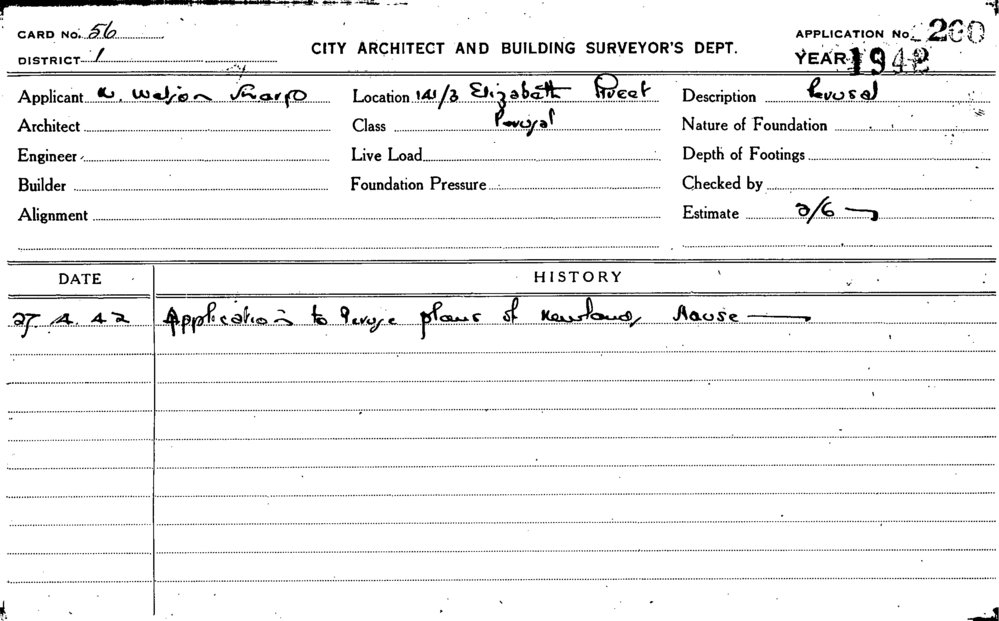 CARD No. 56
DISTRICT 1
CITY ARCHITECT AND BUILDING SURVEYOR'S DEPT.
APPLICATION No. 260
YEAR 1942
Applicant N. Watson Sharp
Location 141/3 Elizabeth Street
Description Perusal
Architect
Class Perusal
Nature of Foundation
Engineer
Live Load
Depth of Footings
Builder
Foundation Pressure
Checked by
Alignment
Estimate 2/6
DATE
HISTORY
27. 4. 42 Application to Peruse plans of Newlands House